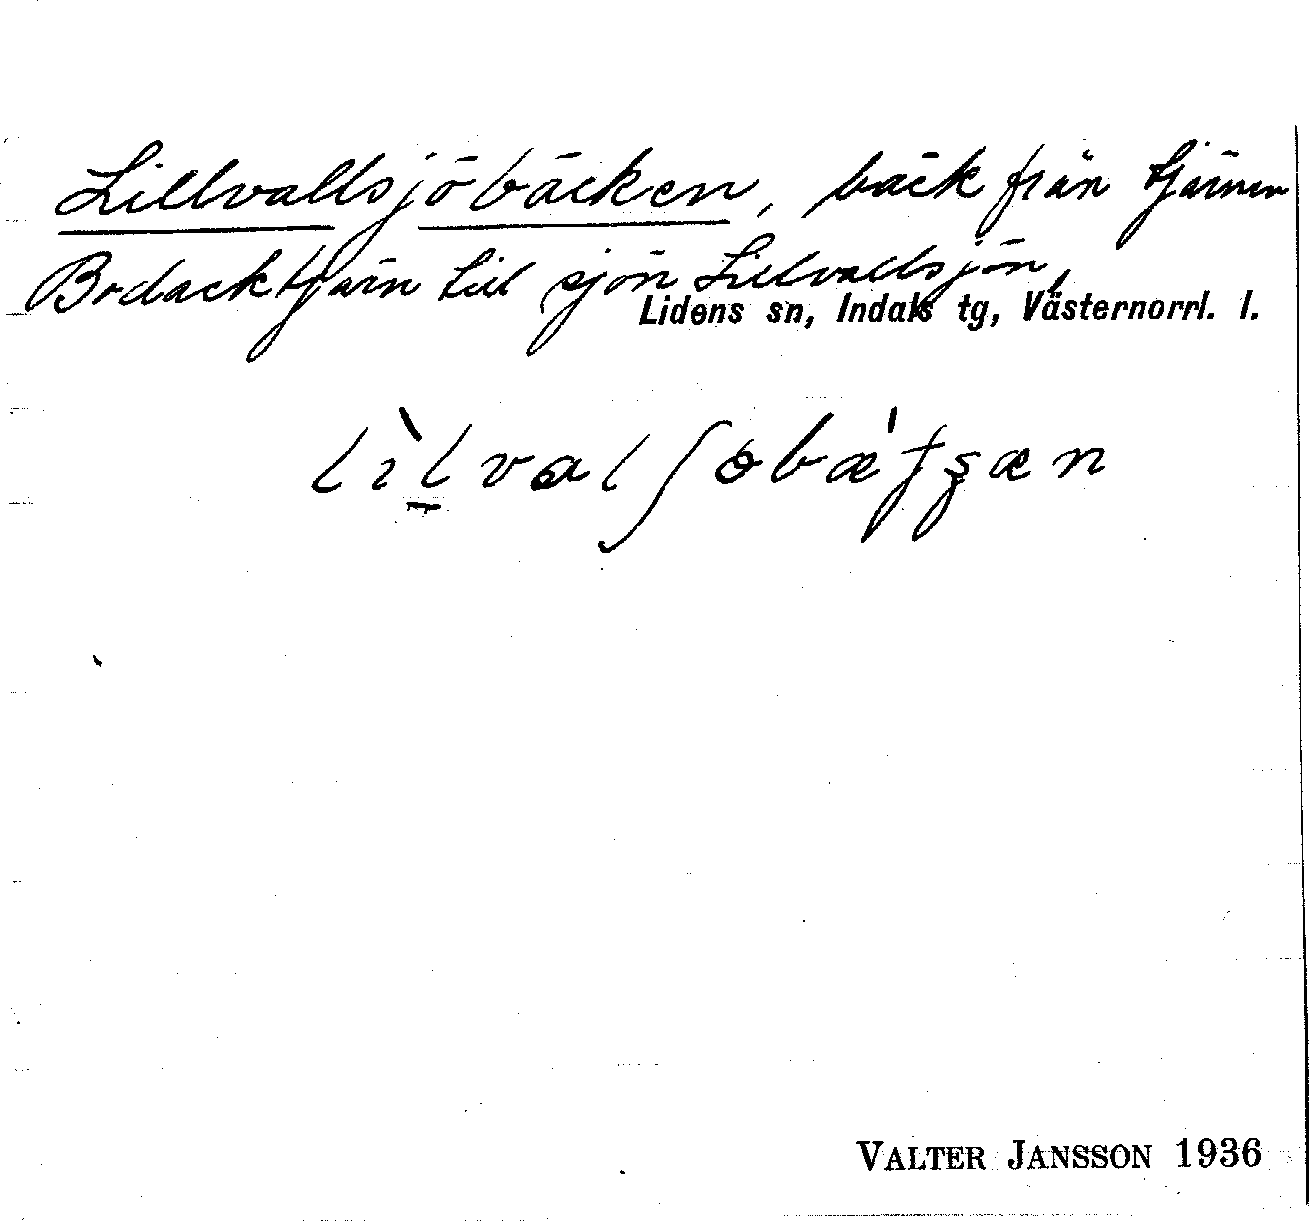 Lillvallsjöbäcken, bäck från tjärnen
Bodacktjärn till sjön Lillvallsjön,
Lidens sn, Indals tg, Västernorrl. l.
VALTER JANSSON 1936